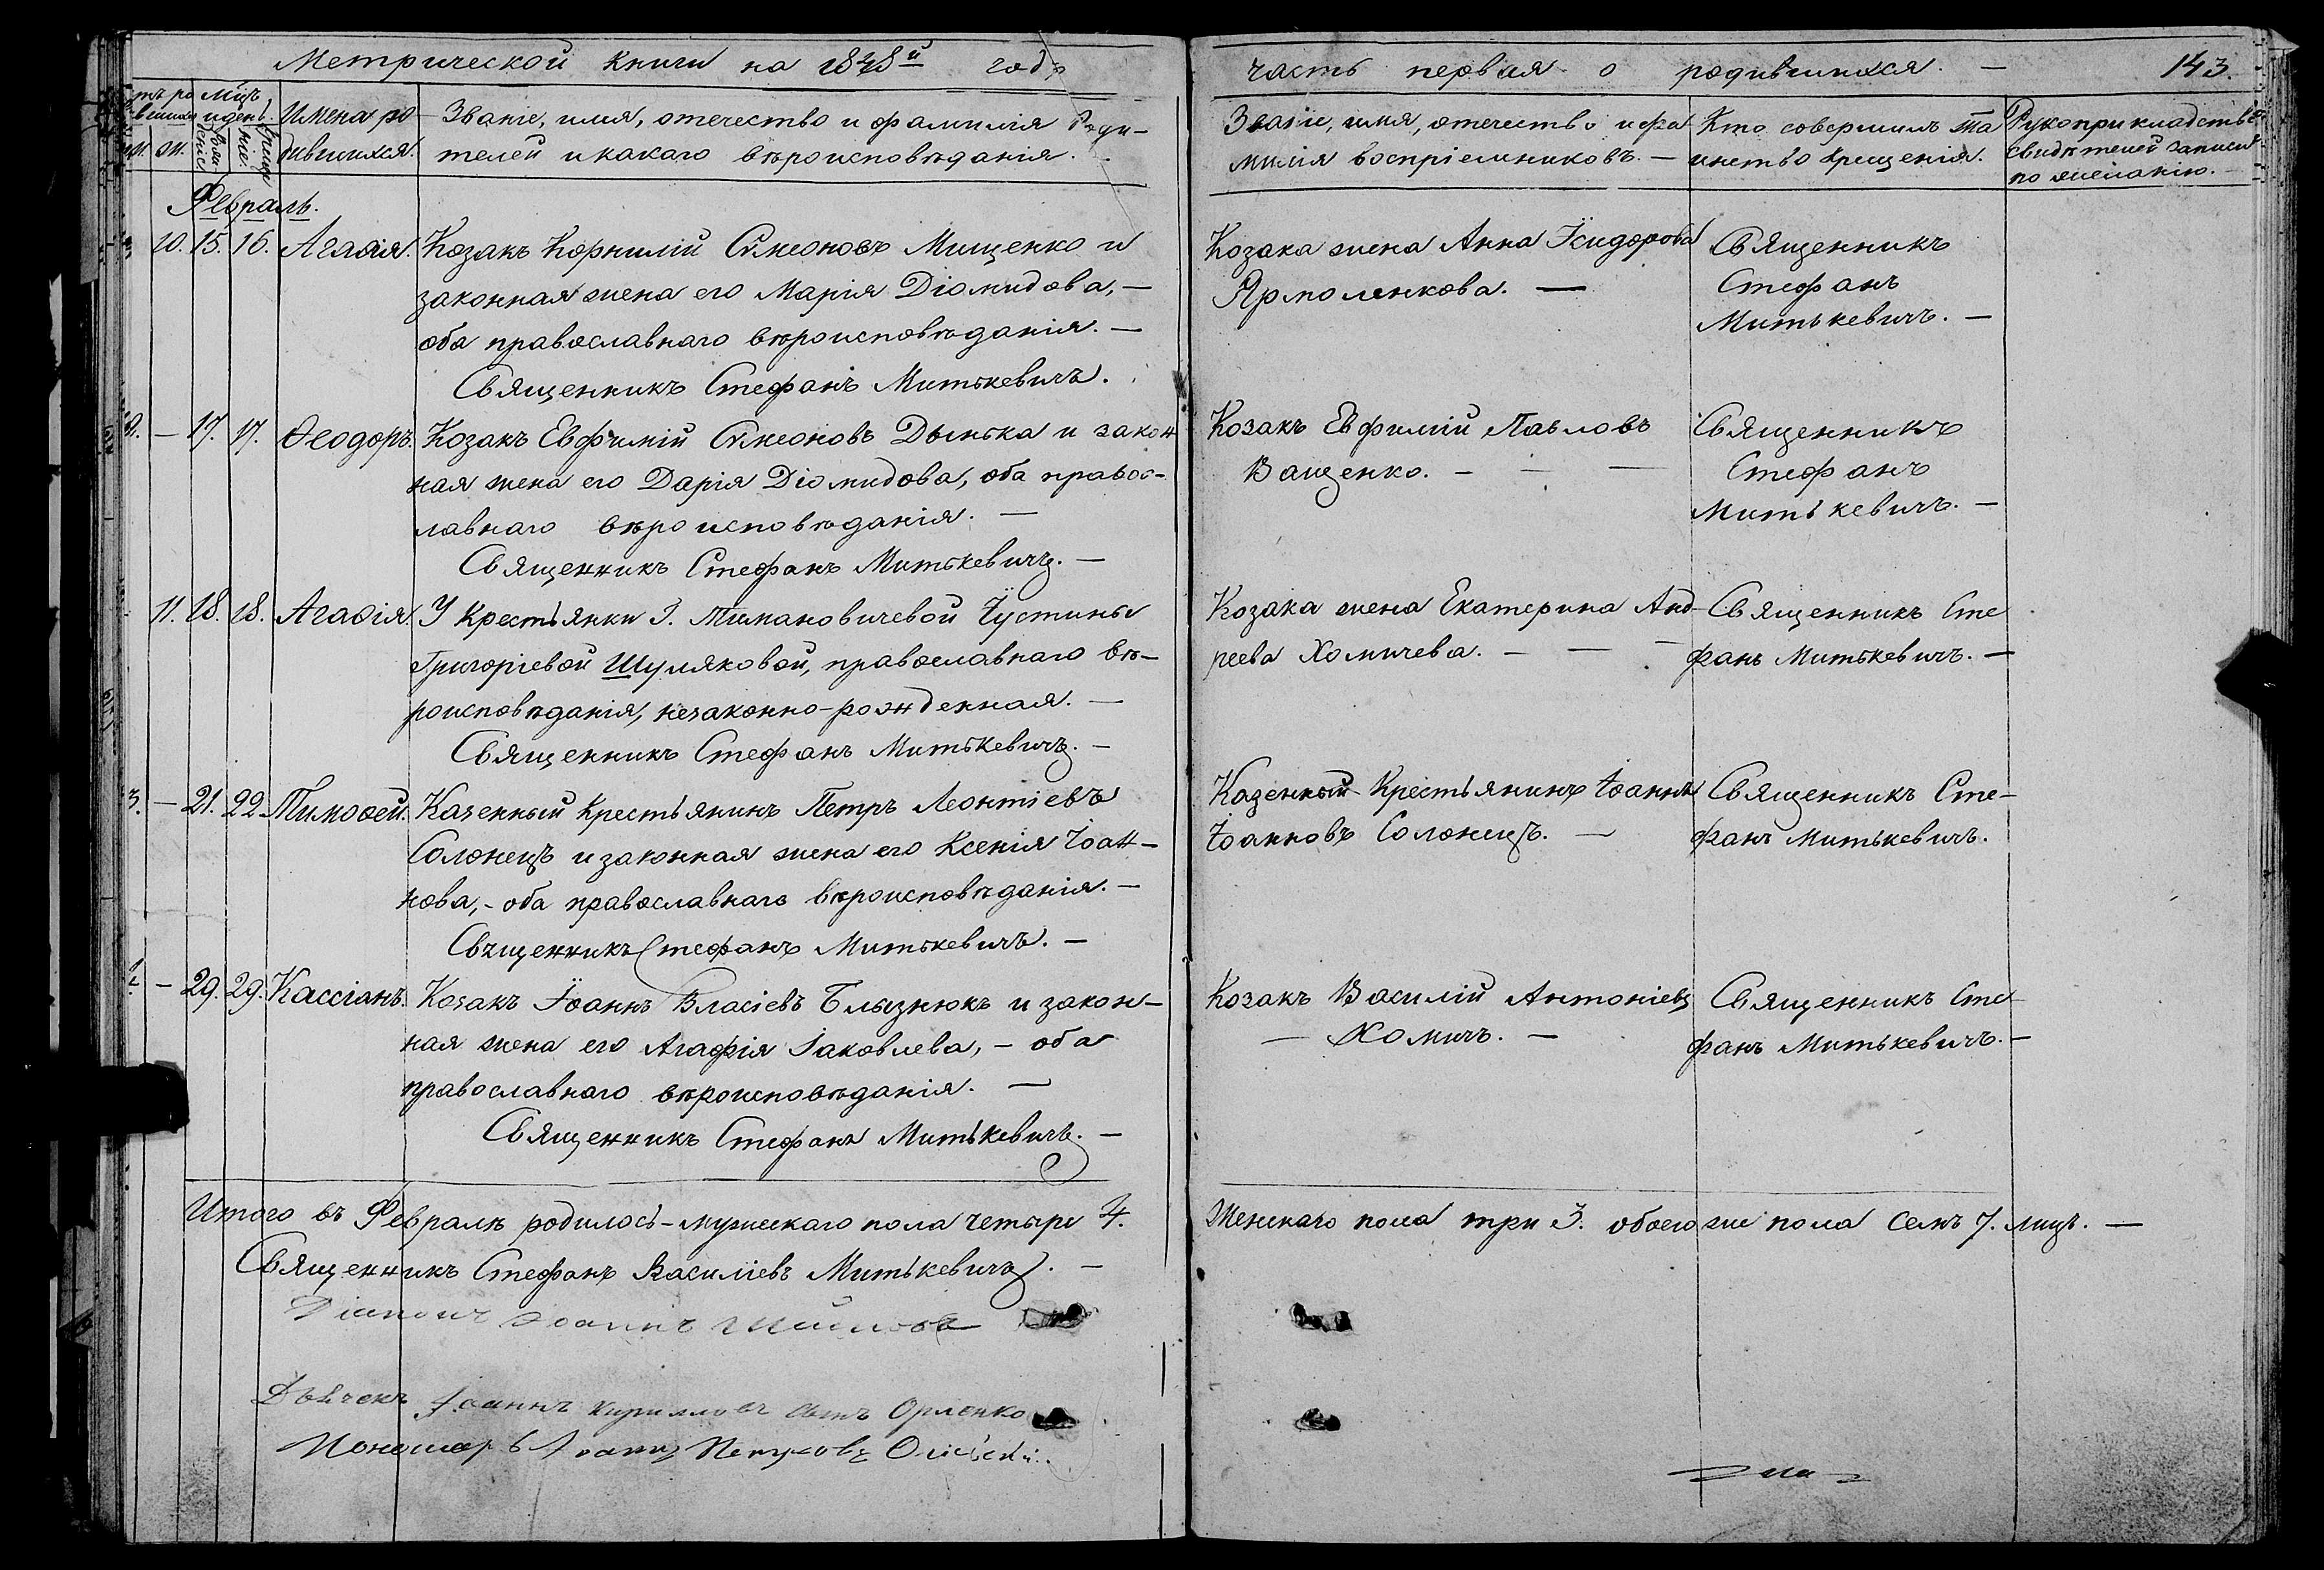 Метрической книги на 1848й годъ
Имена ро-
дившихся.
Званіе, имя, отечество и фамилія Роди-
телей и какаго вѣроисповѣданія.
Февраль.
10. 15. 16. Агафія.
Козакъ Корнилій Симеоновъ Мищенко и
законная жена его Марія Діомидова, —
оба православнаго вѣроисповѣданія. —
Священникъ Стефанъ Митькевичъ.
2. — 17. 17. Ѳеодоръ.
Козакъ Евфимій Симеоновъ Дынька и закон
ная жена его Дарія Діомидова, оба правос-
лавнаго вѣроисповѣданія. —
Священникъ Стефанъ Митькевичъ. —
11. 18. 18. Агаѳія.
У Крестьянки Г. Тимановичевой Іустины
Григоріевой Шуляковой, православнаго вѣ-
роисповѣданія, незаконно-рожденная. —
Священникъ Стефанъ Митькевичъ. —
3. — 21. 22. Тимоѳей.
Казенный Крестьянинъ Петръ Леонтіевъ
Солонецъ и законная жена его Ксенія Іоан-
нова, - оба православнаго вѣроисповѣданія. —
Священникъ Стефанъ Митькевичъ. —
4. — 29. 29. Кассіанъ.
Козакъ Іоаннъ Власіевъ Блызнюкъ и закон-
ная жена его Агафія Іаковлева, - оба
православнаго вѣроисповѣданія. —
Священникъ Стефанъ Митькевичъ. —
Итого въ Февралѣ родилось - мужескаго пола четыре 4.
Священникъ Стефанъ Василіевъ Митькевичъ. —
Діаконъ Іоаннъ
Дьячекъ Іоаннъ Кирилловъ сынъ Орленко
Пономарь
часть первая о родившихся. — 143.
Званіе, имя, отечество и фа
милія воспріемниковъ. —
Кто совершилъ та
инство крещенія.
Рукоприкладство
свидѣтелей записи
по желанію.
Козака жена Анна Ісидорова
Ярмоленкова. —
Священникъ
Стефанъ
Митькевичъ. —
Козакъ Евфимій Павловъ
Ващенко. — — —
Священникъ
Стефанъ
Митькевичъ. —
Козака жена Екатерина Анд-
реева Хомичева. — — —
Священникъ Сте
фанъ Митькевичъ. —
Казенный Крестьянинъ Іоаннъ
Іоанновъ Солонецъ. —
Священникъ Сте-
фанъ Митькевичъ.
Козакъ Василій Антоніевъ
— Хомичъ. —
Священникъ Сте-
фанъ Митькевичъ. —
Женскаго пола три 3. обоего же пола семь 7. лицъ. —